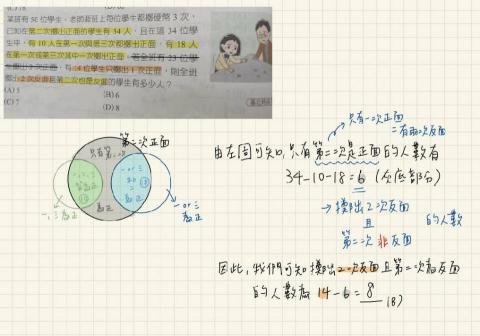 (L)18
某班有50位學生,老師要班上每位學生都擲硬幣3次,
已知在第二次擲出正面的學生有34人,且在這34位學
生中,有10人在第一次與第三次都擲出正面,有18人
在第一次或第三次其中一次擲出正面。若全班有23位學
有14位學生只擲出1次正面,則全班
擲出2次反面且第二次也是反面的學生有多少人?
(A)5
(B)6
(C)7
(D)8
第二次正面
只有第二次
一、三皆正
一or三為正
18
由左圖可知,只有第二次是正面的人數有
只有一次正面
=有兩次反面
34-10-18=6 (灰底部分)
→擲出2次反面
且
第二次非反面
的人數
因此,我們可知擲出2次反面且第二次為反面
的人數為 14-6=8
(8)